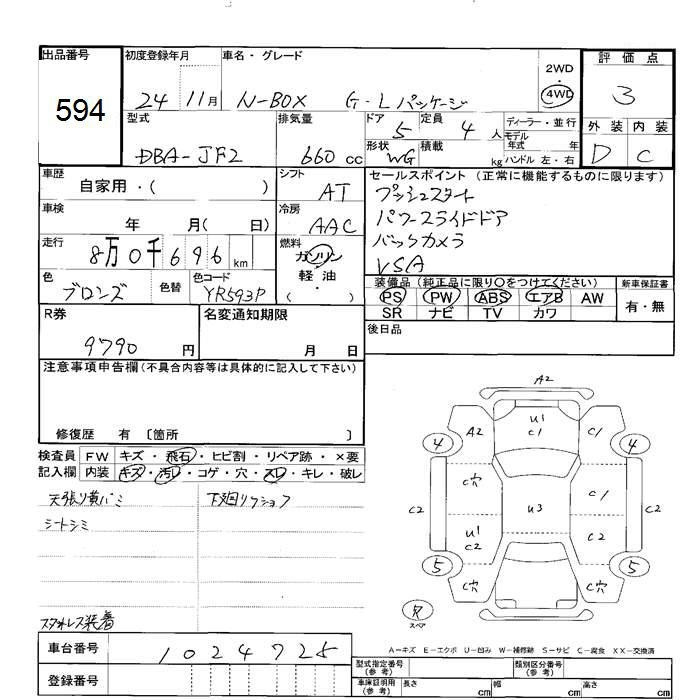 出品番号
594
初度登録年月
24 11月
車名・グレード
N-BOX G・Lパッケージ
2WD
・
4WD
評価点
3
外装 内装
D C
型式
DBA-JF2
排気量
660 cc
ドア
5
定員
4 人
形状
WG
積載
kg
ディーラー・並行
モデル年式 年
ハンドル 左・右
車歴
自家用・( )
シフト
AT
車検
年 月( 日)
冷房
AAC
走行
8万0千696km
燃料
ガソリン
軽・油
( )
色
ブロンズ
色替
色コード
YR593P
セールスポイント(正常に機能するものに限ります)
プッシュスタート
パワースライドドア
バックカメラ
VSA
装備品(純正品に限り○をつけてください)
PS PW ABS エアB AW
SR ナビ TV カワ
新車保証書
有・無
R券
9790 円
名変通知期限
月 日
後日品
注意事項申告欄(不具合内容等は具体的に記入して下さい)
修復歴 有 〔箇所 〕
検査員記入欄
FW キズ・飛石・ヒビ割・リペア跡・×要
内装 キズ・汚レ・コゲ・穴・スレ・キレ・破レ
天張り黄バミ
シートシミ
下廻りワショフ
スタッドレス装着
A2
U1
C1
A2
C1
4
4
C穴
C1
C2
U3
C2
U1
C2
C2
5
5
C穴
C穴
スペア
A−キズ E−エクボ U−凹み W−補修跡 S−サビ C−腐食 XX−交換済
車台番号
1024725
登録番号
型式指定番号(参考)
類別区分番号(参考)
車庫証明用(参考)
長さ cm
幅 cm
高さ cm